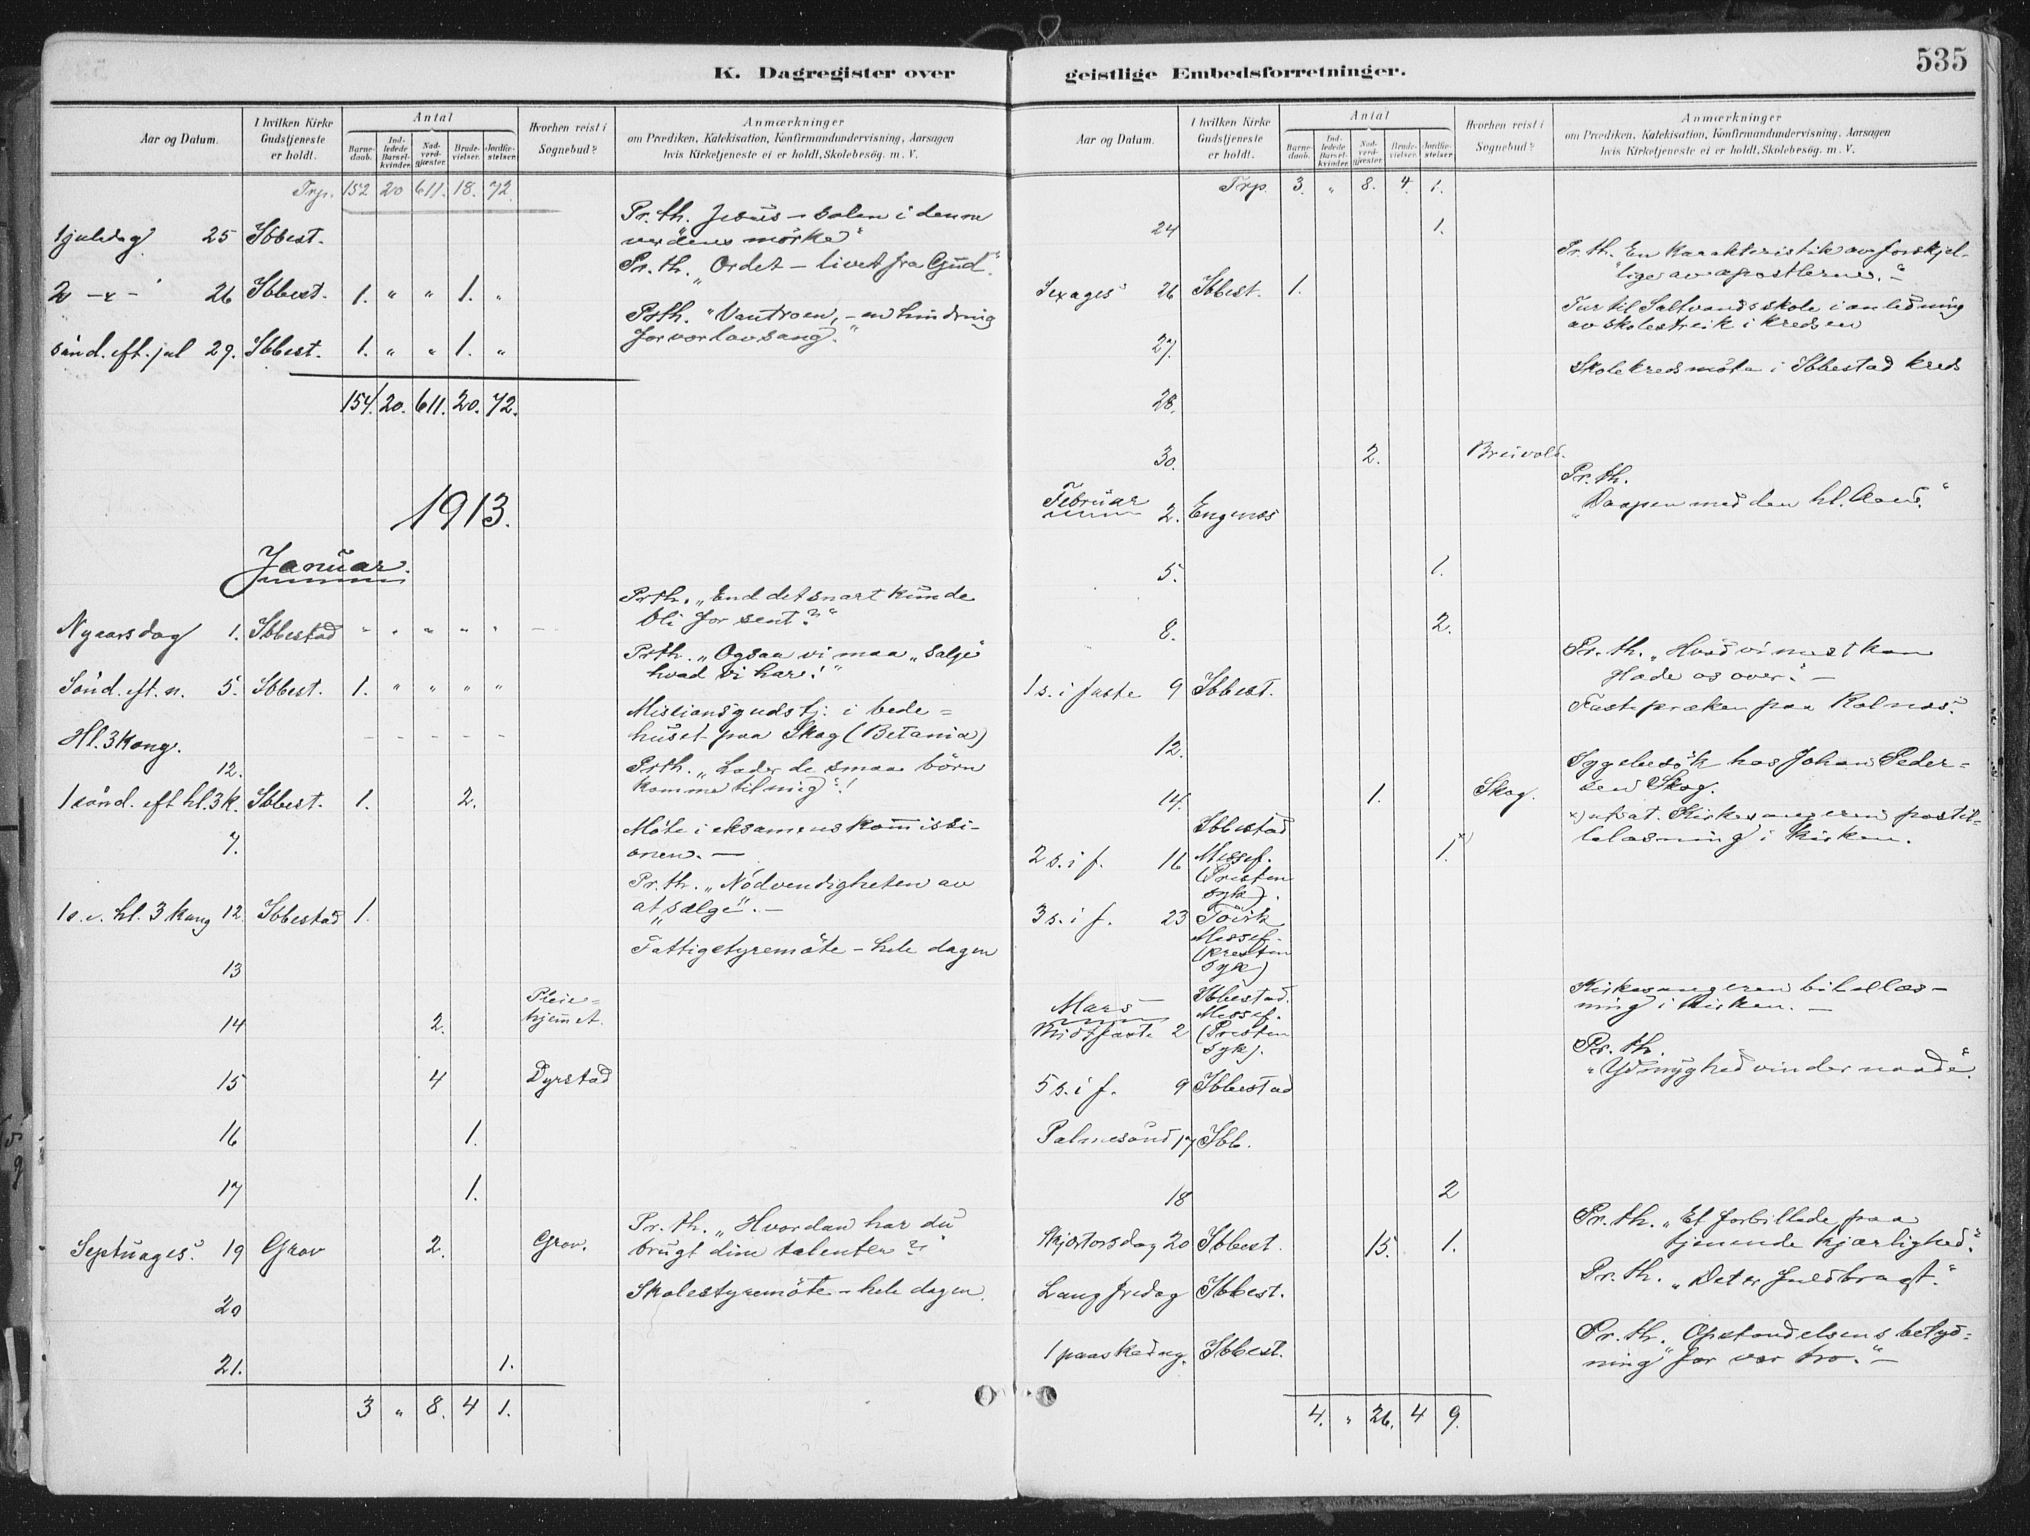 K. Dagregister over
geistlige Embedsforretninger.
535
Aar og Datum.
I hvilken Kirke Gudstjeneste er holdt.
Antal
Barnedaab.
Indledede Barselkvinder.
Nadverdgjester.
Brudevielser.
Jordfæstelser.
Hvorhen reist i Sognebud?
Anmærkninger
om Prædiken, Katekisation, Konfirmandundervisning, Aarsagen
hvis Kirketjeneste ei er holdt, Skolebesøg. m. V.
Trp. 152 20 611. 18. 72.
Pr. th. Jesus – solen i denne
1 juledag 25 Ibbest. verdens mørke"
Pr. th. „Ordet – livet fra Gud"
2 – " – 26 Ibbest. 1. " " 1. "
Prth. "Vantroen, – en hindring
sønd. eft. jul 29. Ibbest. 1. " " 1. " for vor lovsang."
154. 20. 611. 20. 72.
1913.
Januar.
Prth. „End det snart kunde
Nyaarsdag 1. Ibbestad " " " " " – bli for sent?"
Prth. „Ogsaa vi maa „sælge"
Sønd. eft. n. 5. Ibbest. 1. " " " " hvad vi har!"
Missionsgudstj. i bede=
Hl. 3 Kong. – – – – – huset paa Skog (Betania)
12. Prth. „Lader de smaa børn
1 sønd. eft hl. 3 K. Ibbest. 1. 2. komme til mig"!
Møte i eksamenskommissi-
7. onen. –
Pr. th. „Nødvendigheten av
1 s. e. hl. 3 Kong 12. Ibbestad 1. at sælge". –
Fattigstyremøte – hele dagen
13
14 2. Pleie=
hjemmet.
15 4 Dyrstad
16 1.
17 1.
Pr. th. „Hvordan har du
Septuages. 19 Grov 2. Grov. brugt dine talenter?"
Skolestyremøte – hele dagen.
20
21. 1.
3 " 8. 4 1.
Aar og Datum.
I hvilken Kirke Gudstjeneste er holdt.
Antal
Barnedaab.
Indledede Barselkvinder.
Nadverdgjester.
Brudevielser.
Jordfæstelser.
Hvorhen reist i Sognebud?
Anmærkninger
om Prædiken, Katekisation, Konfirmandundervisning, Aarsagen
hvis Kirketjeneste ei er holdt, Skolebesøg. m. V.
Trp. 3. " 8. 4. 1.
24 1.
Pr. th. En karakteristik av forskjel-
lige av apostlerne."
Sexages. 26 Ibbest. 1.
Tur til Saltvands skole i anledning
av skolestreik i kredsen
27.
Skolekredsmøte i Ibbestad kreds
28.
30. 2. Breivold.
Februar 2. Engenes Pr. th.
„Daapen med den hl. Aand."
5. 1.
8. 2.
Pr. th. „Hvad vi mest kan
1 s. i faste 9 Ibbest. glæde os over". –
Fastepræken paa Kalnæs.
12.
Sygebesøk hos Johan Peder=
14. 1. Skog. sen Skog.
x) utsat. Kirkesangeren postil-
lelæsning i kirken.
2 s. i f. 16 Ibbestad
Messef.
(Presten
syk). 1. x)
3 s. i f. 23
Messef.
(Presten
syk)
Kirkesangeren bibellæs-
ning i kirken. –
Mars
Midtfaste 2 Ibbestad.
Messef.
(Presten
syk).
Pr. th.
„Ydmyghed vinder naade."
5 s. i f. 9 Ibbestad
Palmesønd 17 Ibb.
18 2
Pr. th. „Et forbillede paa
Skjærtorsdag 20 Ibbest. 15. 1. tjenende kjærlighed."
Pr. th. „Det er fuldbragt."
Langfredag Ibbest.
Pr. th. „Opstandelsens betyd-
1 paaskedag. Ibbest. ning for vor tro." –
4. " 26. 4 9.